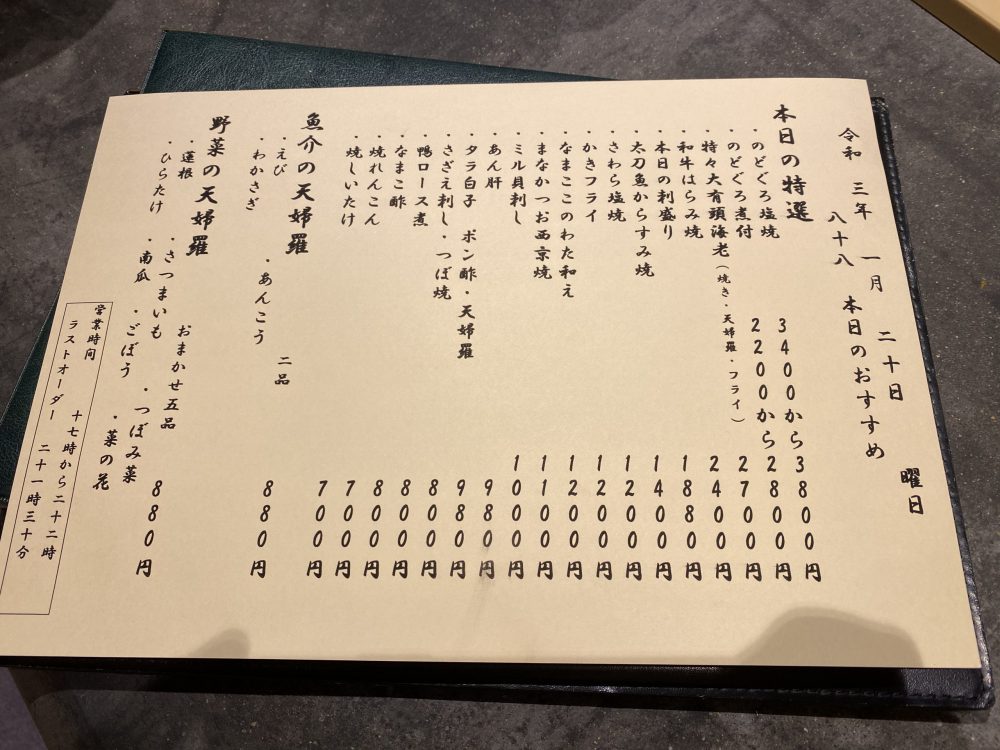 令和 三年 一月 二十日 曜日
八十八 本日のおすすめ
本日の特選
・のどぐろ塩焼 3400から3800円
・のどぐろ煮付 2200から2800円
・特々大有頭海老（焼き・天婦羅・フライ） 2700円
・和牛はらみ焼 2400円
・本日の刺盛り 1880円
・太刀魚からすみ焼 1400円
・さわら塩焼 1200円
・かきフライ 1200円
・なまここのわた和え 1200円
・まなかつお西京焼 1100円
・ミル貝刺し 1000円
・あん肝 980円
・タラ白子 ポン酢・天婦羅 980円
・さざえ刺し・つぼ焼 800円
・鴨ロース煮 800円
・なまこ酢 800円
・焼れんこん 700円
・焼しいたけ 700円
魚介の天婦羅 二品 880円
・えび ・あんこう
・わかさぎ
野菜の天婦羅 おまかせ五品 880円
・蓮根 ・さつまいも ・つぼみ菜
・ひらたけ ・南瓜 ・ごぼう ・菜の花
営業時間 十七時から二十二時
ラストオーダー 二十一時三十分